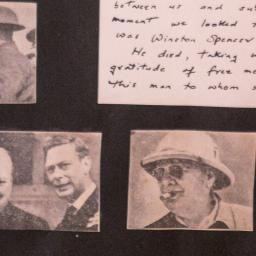 between us and sub
moment we looked
was Winston Spencer
He died, taking w
gratitude of free me
this man to whom s